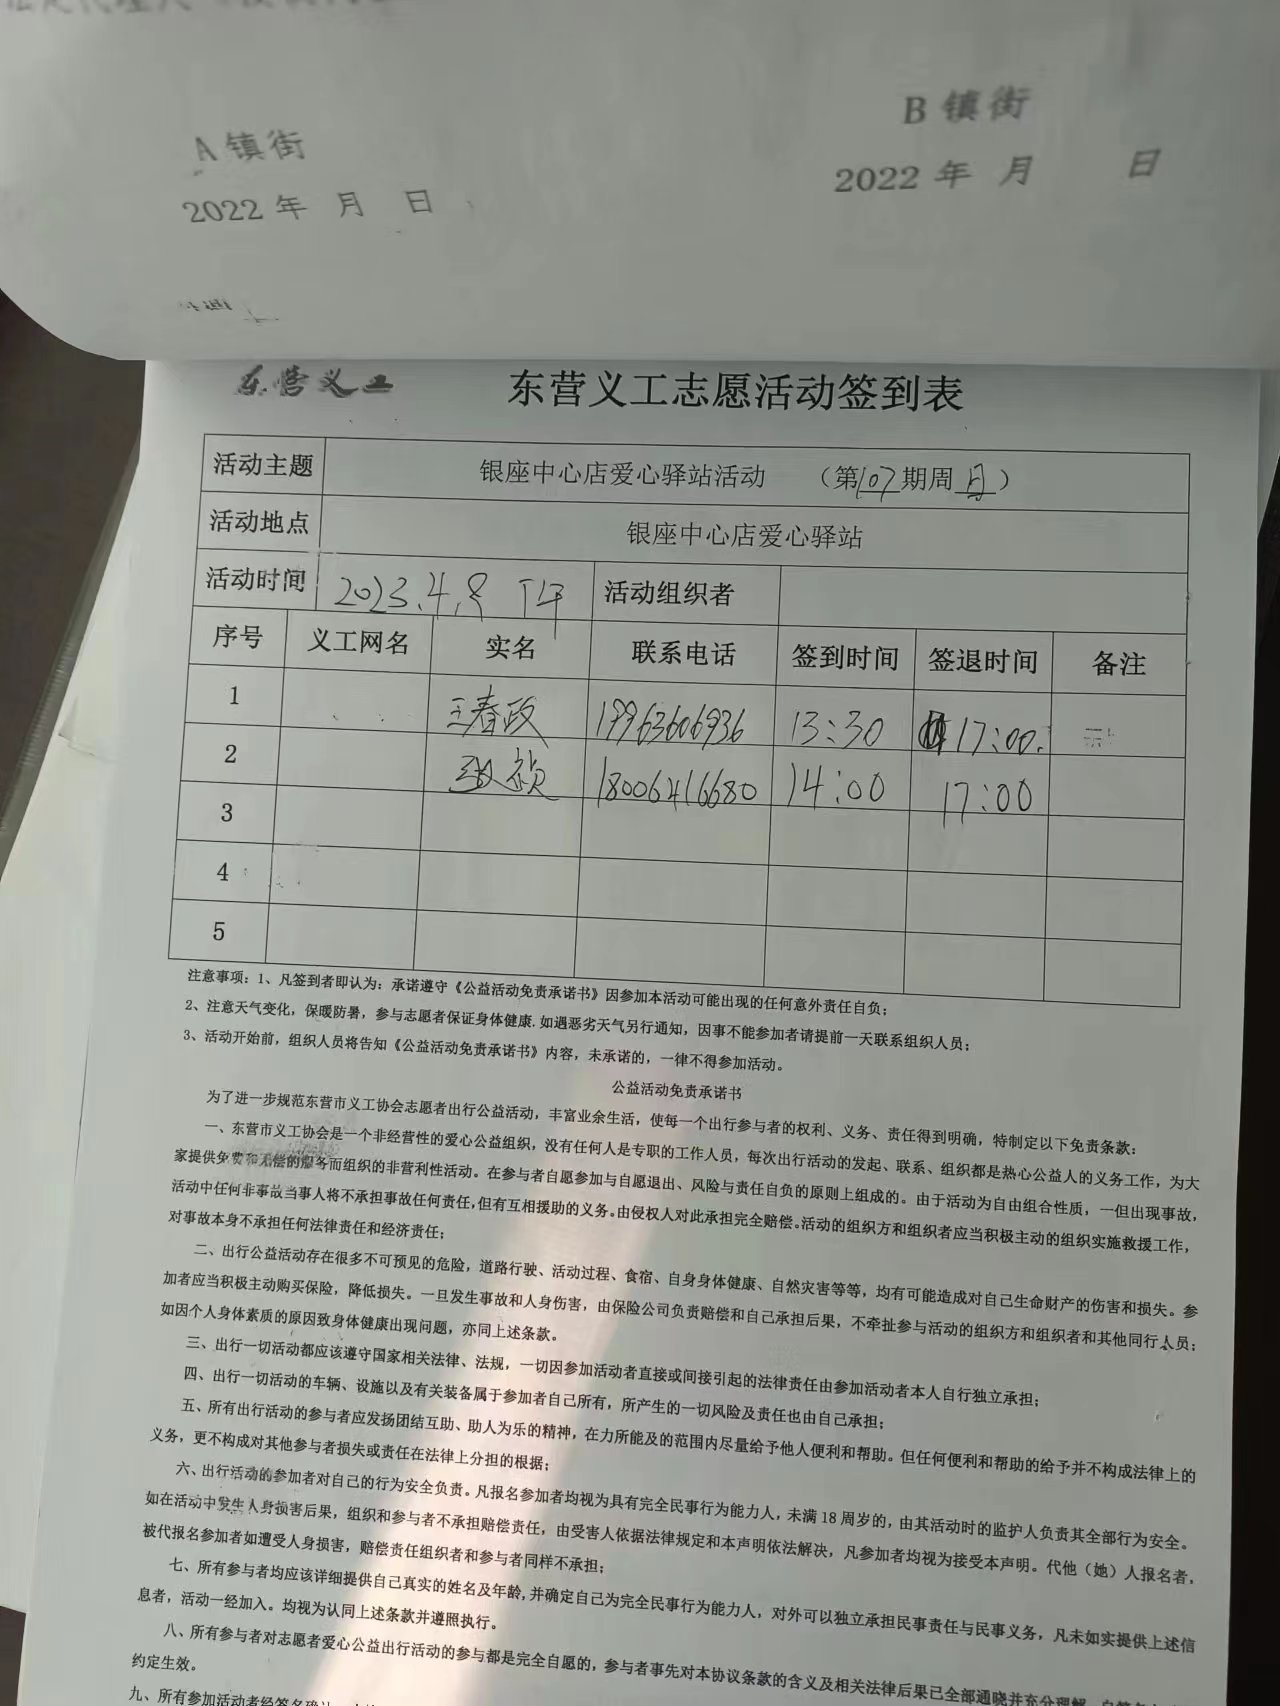 A 镇街
B 镇街
2022 年 月 日
2022 年 月 日
东营义工
东营义工志愿活动签到表
活动主题 银座中心店爱心驿站活动 （第107期周日）
活动地点 银座中心店爱心驿站
活动时间 2023.4.8 下午 活动组织者
序号 义工网名 实名 联系电话 签到时间 签退时间 备注
1 王春政 19963606936 13:30 17:00.
2 张祯 18006416680 14:00 17:00
3
4
5
注意事项：1、凡签到者即认为：承诺遵守《公益活动免责承诺书》因参加本活动可能出现的任何意外责任自负；
2、注意天气变化，保暖防暑，参与志愿者保证身体健康.如遇恶劣天气另行通知，因事不能参加者请提前一天联系组织人员；
3、活动开始前，组织人员将告知《公益活动免责承诺书》内容，未承诺的，一律不得参加活动。
公益活动免责承诺书
为了进一步规范东营市义工协会志愿者出行公益活动，丰富业余生活，使每一个出行参与者的权利、义务、责任得到明确，特制定以下免责条款：
一、东营市义工协会是一个非经营性的爱心公益组织，没有任何人是专职的工作人员，每次出行活动的发起、联系、组织都是热心公益人的义务工作，为大
家提供免费和无偿的服务而组织的非营利性活动。在参与者自愿参加与自愿退出、风险与责任自负的原则上组成的。由于活动为自由组合性质，一但出现事故，
活动中任何非事故当事人将不承担事故任何责任,但有互相援助的义务。由侵权人对此承担完全赔偿。活动的组织方和组织者应当积极主动的组织实施救援工作，
对事故本身不承担任何法律责任和经济责任；
二、出行公益活动存在很多不可预见的危险，道路行驶、活动过程、食宿、自身身体健康、自然灾害等等，均有可能造成对自己生命财产的伤害和损失。参
加者应当积极主动购买保险，降低损失。一旦发生事故和人身伤害，由保险公司负责赔偿和自己承担后果，不牵扯参与活动的组织方和组织者和其他同行人员；
如因个人身体素质的原因致身体健康出现问题，亦同上述条款。
三、出行一切活动都应该遵守国家相关法律、法规，一切因参加活动者直接或间接引起的法律责任由参加活动者本人自行独立承担；
四、出行一切活动的车辆、设施以及有关装备属于参加者自己所有，所产生的一切风险及责任也由自己承担；
五、所有出行活动的参与者应发扬团结互助、助人为乐的精神，在力所能及的范围内尽量给予他人便利和帮助。但任何便利和帮助的给予并不构成法律上的
义务，更不构成对其他参与者损失或责任在法律上分担的根据；
六、出行活动的参加者对自己的行为安全负责。凡报名参加者均视为具有完全民事行为能力人，未满 18 周岁的，由其活动时的监护人负责其全部行为安全。
如在活动中发生人身损害后果，组织和参与者不承担赔偿责任，由受害人依据法律规定和本声明依法解决，凡参加者均视为接受本声明。代他（她）人报名者，
被代报名参加者如遭受人身损害，赔偿责任组织者和参与者同样不承担；
七、所有参与者均应该详细提供自己真实的姓名及年龄,并确定自己为完全民事行为能力人，对外可以独立承担民事责任与民事义务，凡未如实提供上述信
息者，活动一经加入。均视为认同上述条款并遵照执行。
八、所有参与者对志愿者爱心公益出行活动的参与都是完全自愿的，参与者事先对本协议条款的含义及相关法律后果已全部通晓并充分理解
约定生效。
九、所有参加活动者经签名确认